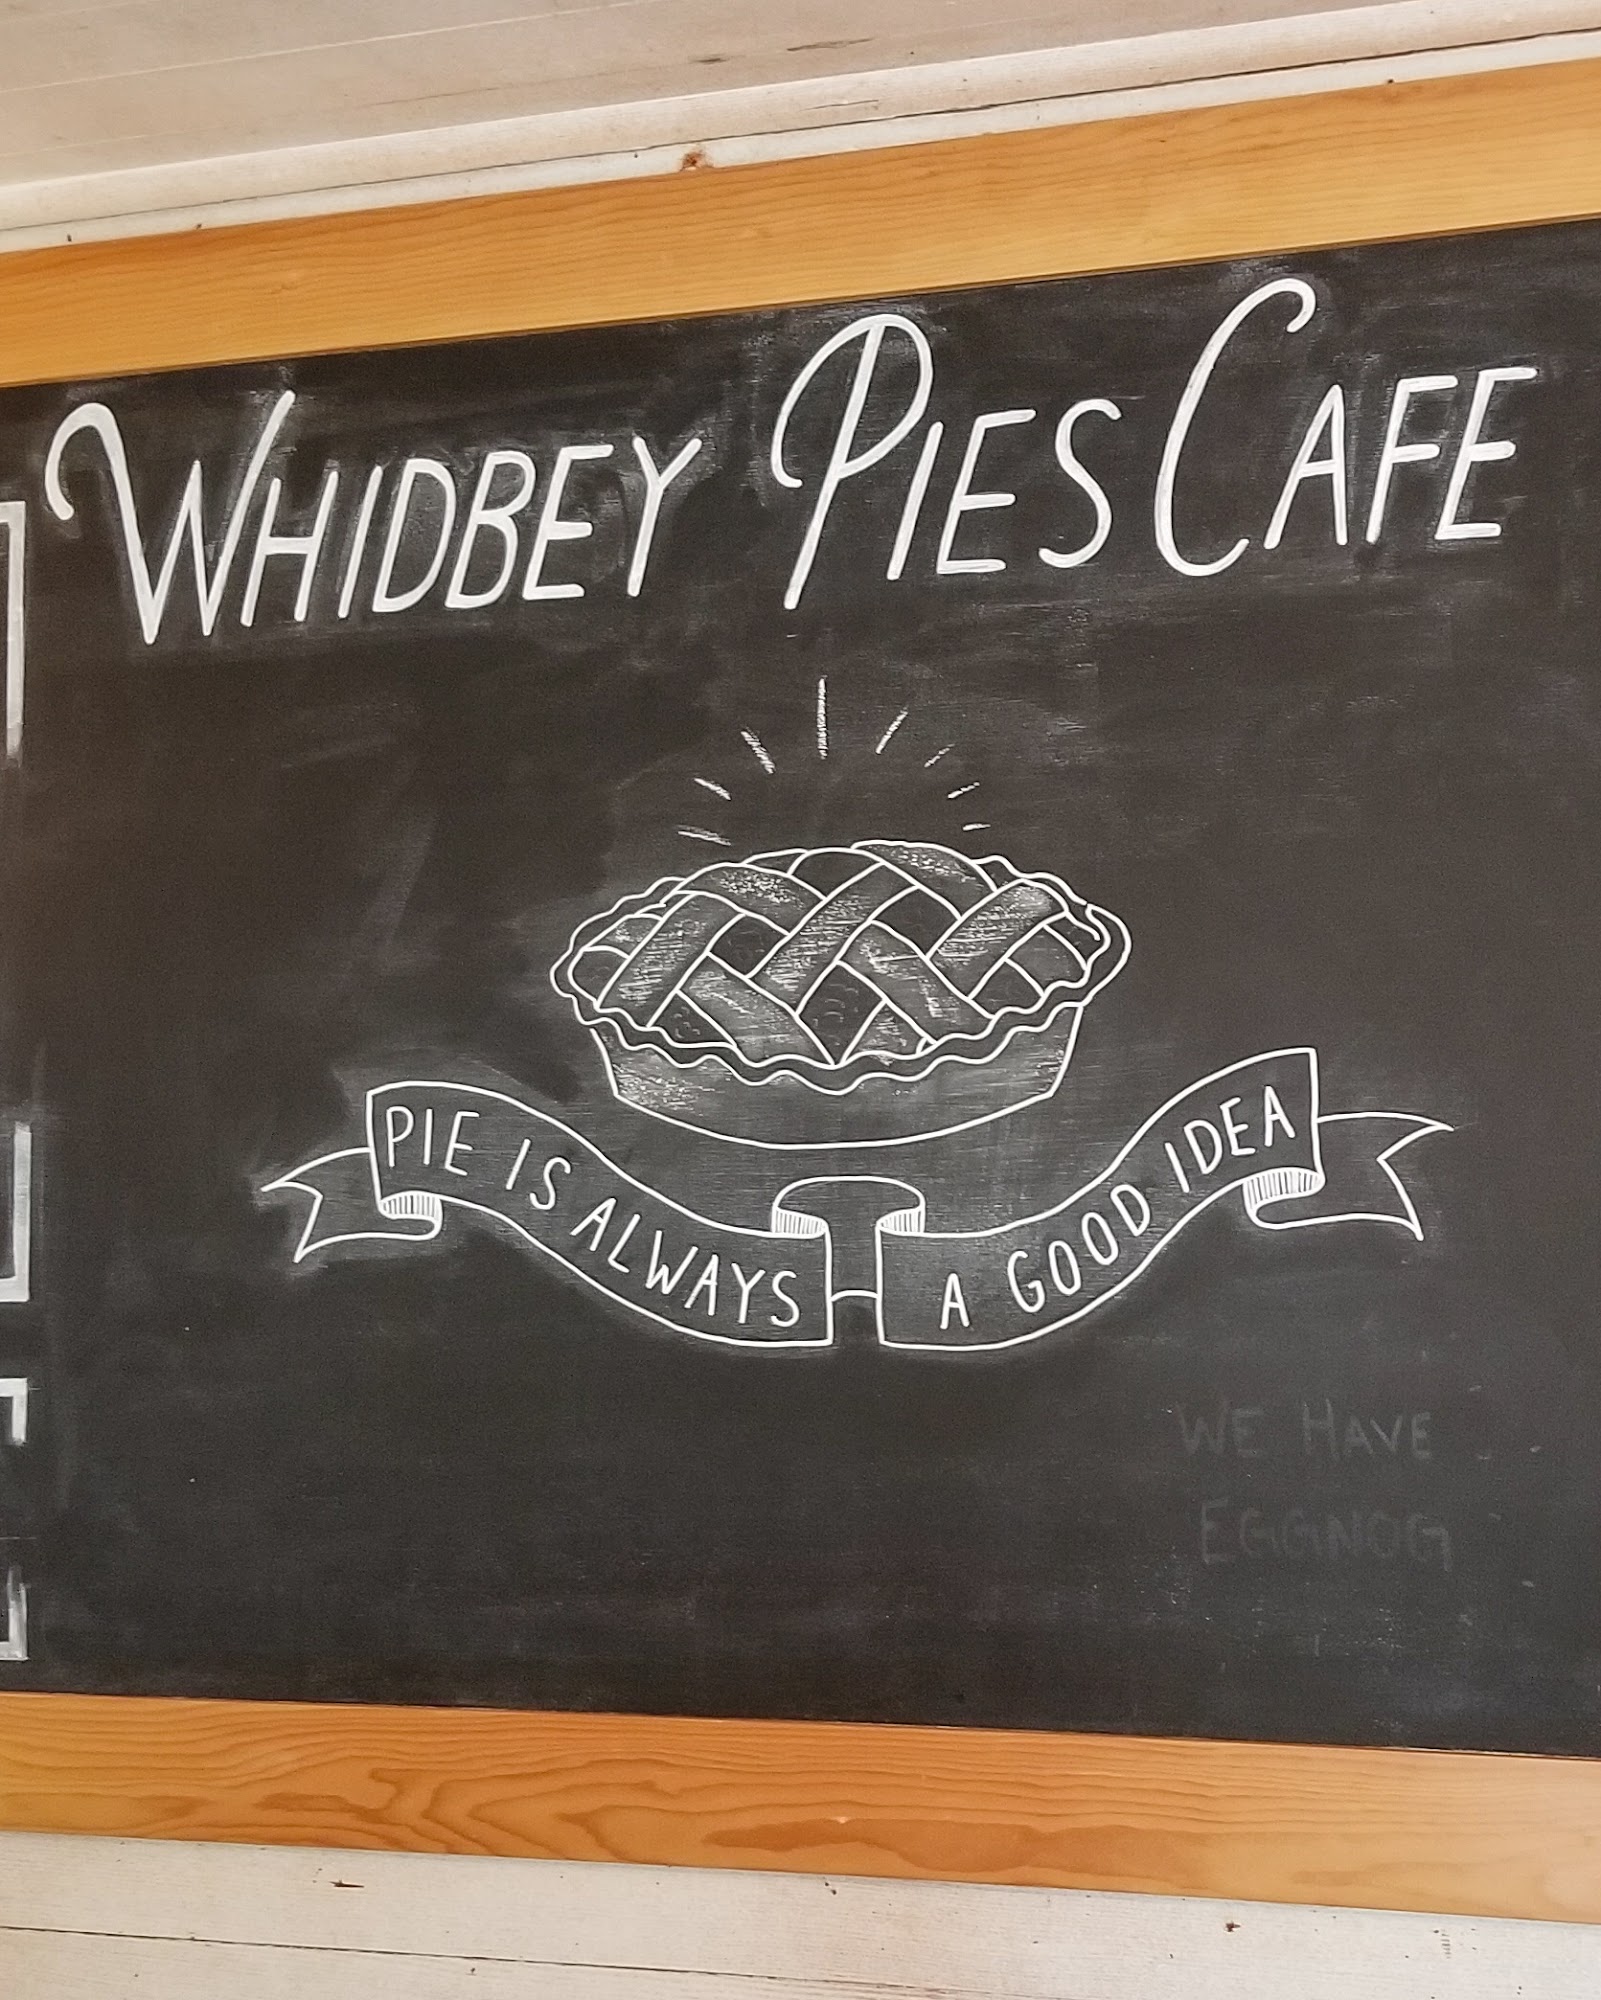 WHIDBEY PIES CAFE
PIE IS ALWAYS A GOOD IDEA
WE HAVE
EGGNOG